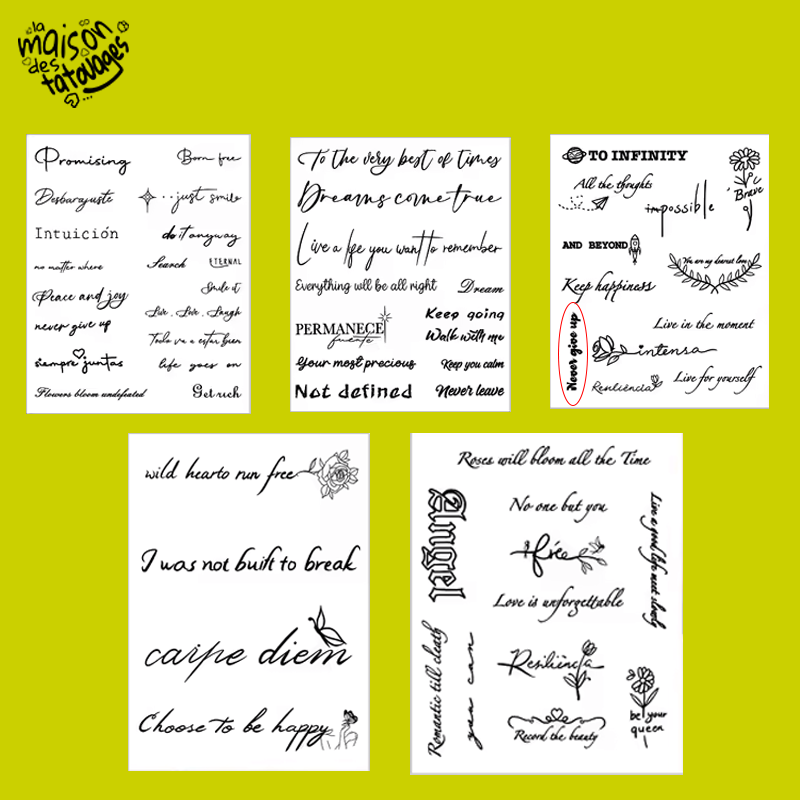 la
maison
des
tatouages
Promising
Born free
Desbarajuste
just smile
Intuición
do it anyway
no matter where
Search
ETERNAL
Peace and joy
Smile it
Live, Love, Laugh
never give up
Todo va a estar bien
siempre juntas
life goes on
Flowers bloom undefeated
Get rich
To the very best of times
Dreams come true
Live a life you want to remember
Everything will be all right
Dream
PERMANECE
fuerte
Keep going
Walk with me
Your most precious
Keep you calm
Not defined
Never leave
TO INFINITY
All the thoughts
impossible
Brave
AND BEYOND
You are my dearest love
Keep happiness
Never give up
Live in the moment
intensa
Resiliência
Live for yourself
wild hearto run free
I was not built to break
carpe diem
Choose to be happy
Roses will bloom all the Time
Angel
No one but you
free
Love is unforgettable
Live a good life meet slowly
Romantic till death
you can
Resiliência
Record the beauty
be your
queen